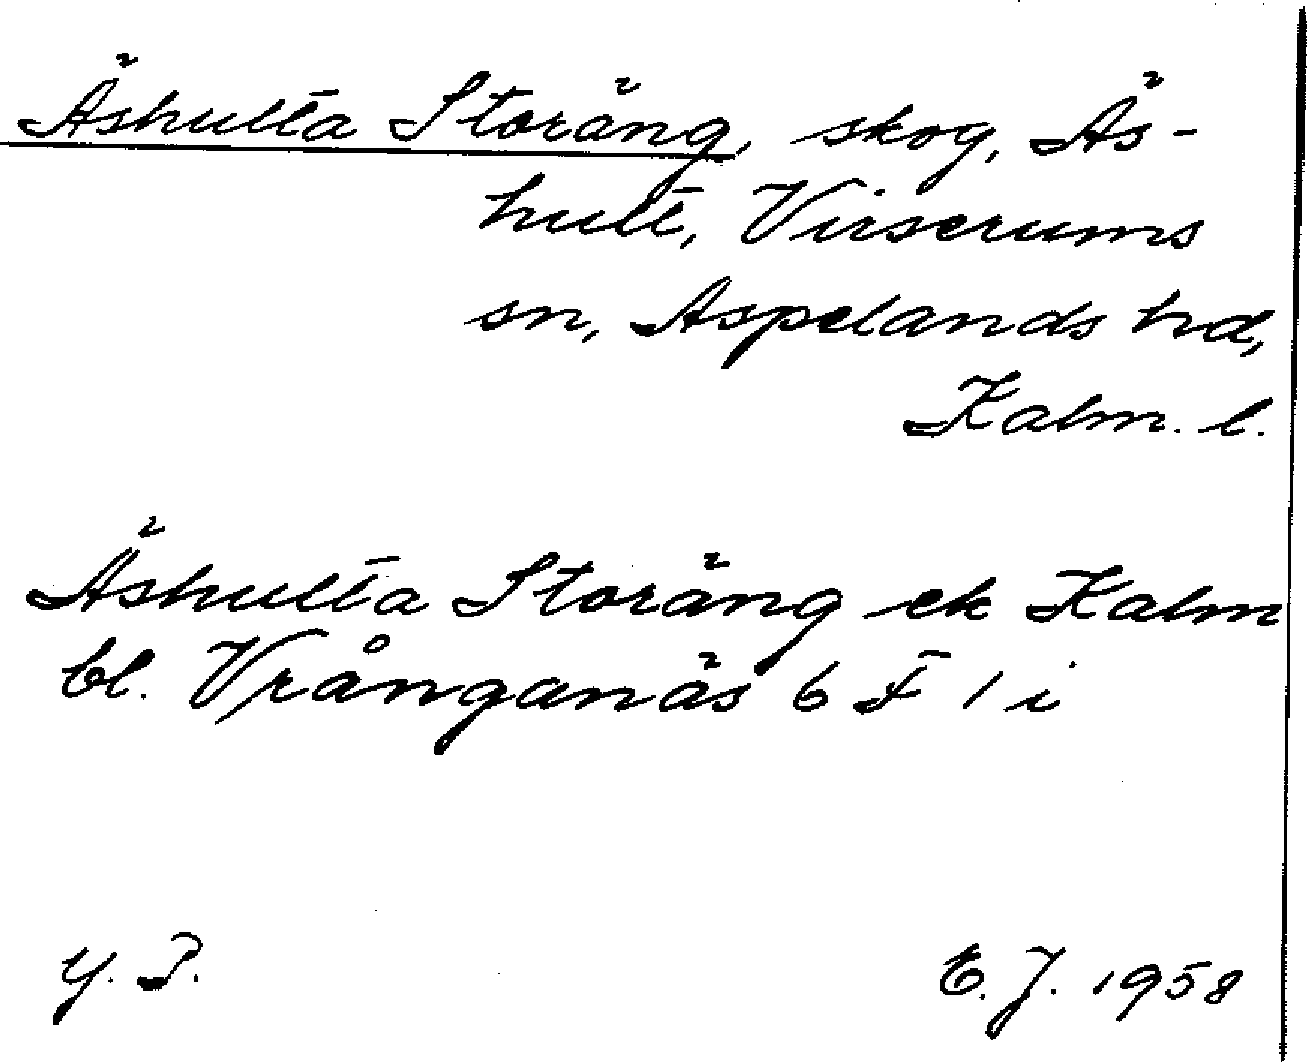 Äshulta Storäng, skog, Äs-
hult, Virserums
sn, Aspelands hd,
Kalm. l.
Äshulta Storäng ek Kalm
bl. Vrånganäs 6 F 1 i
Y. P.
E. J. 1958